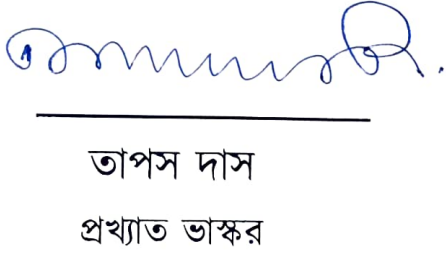 তাপস দাস
প্রখ্যাত ভাস্কর